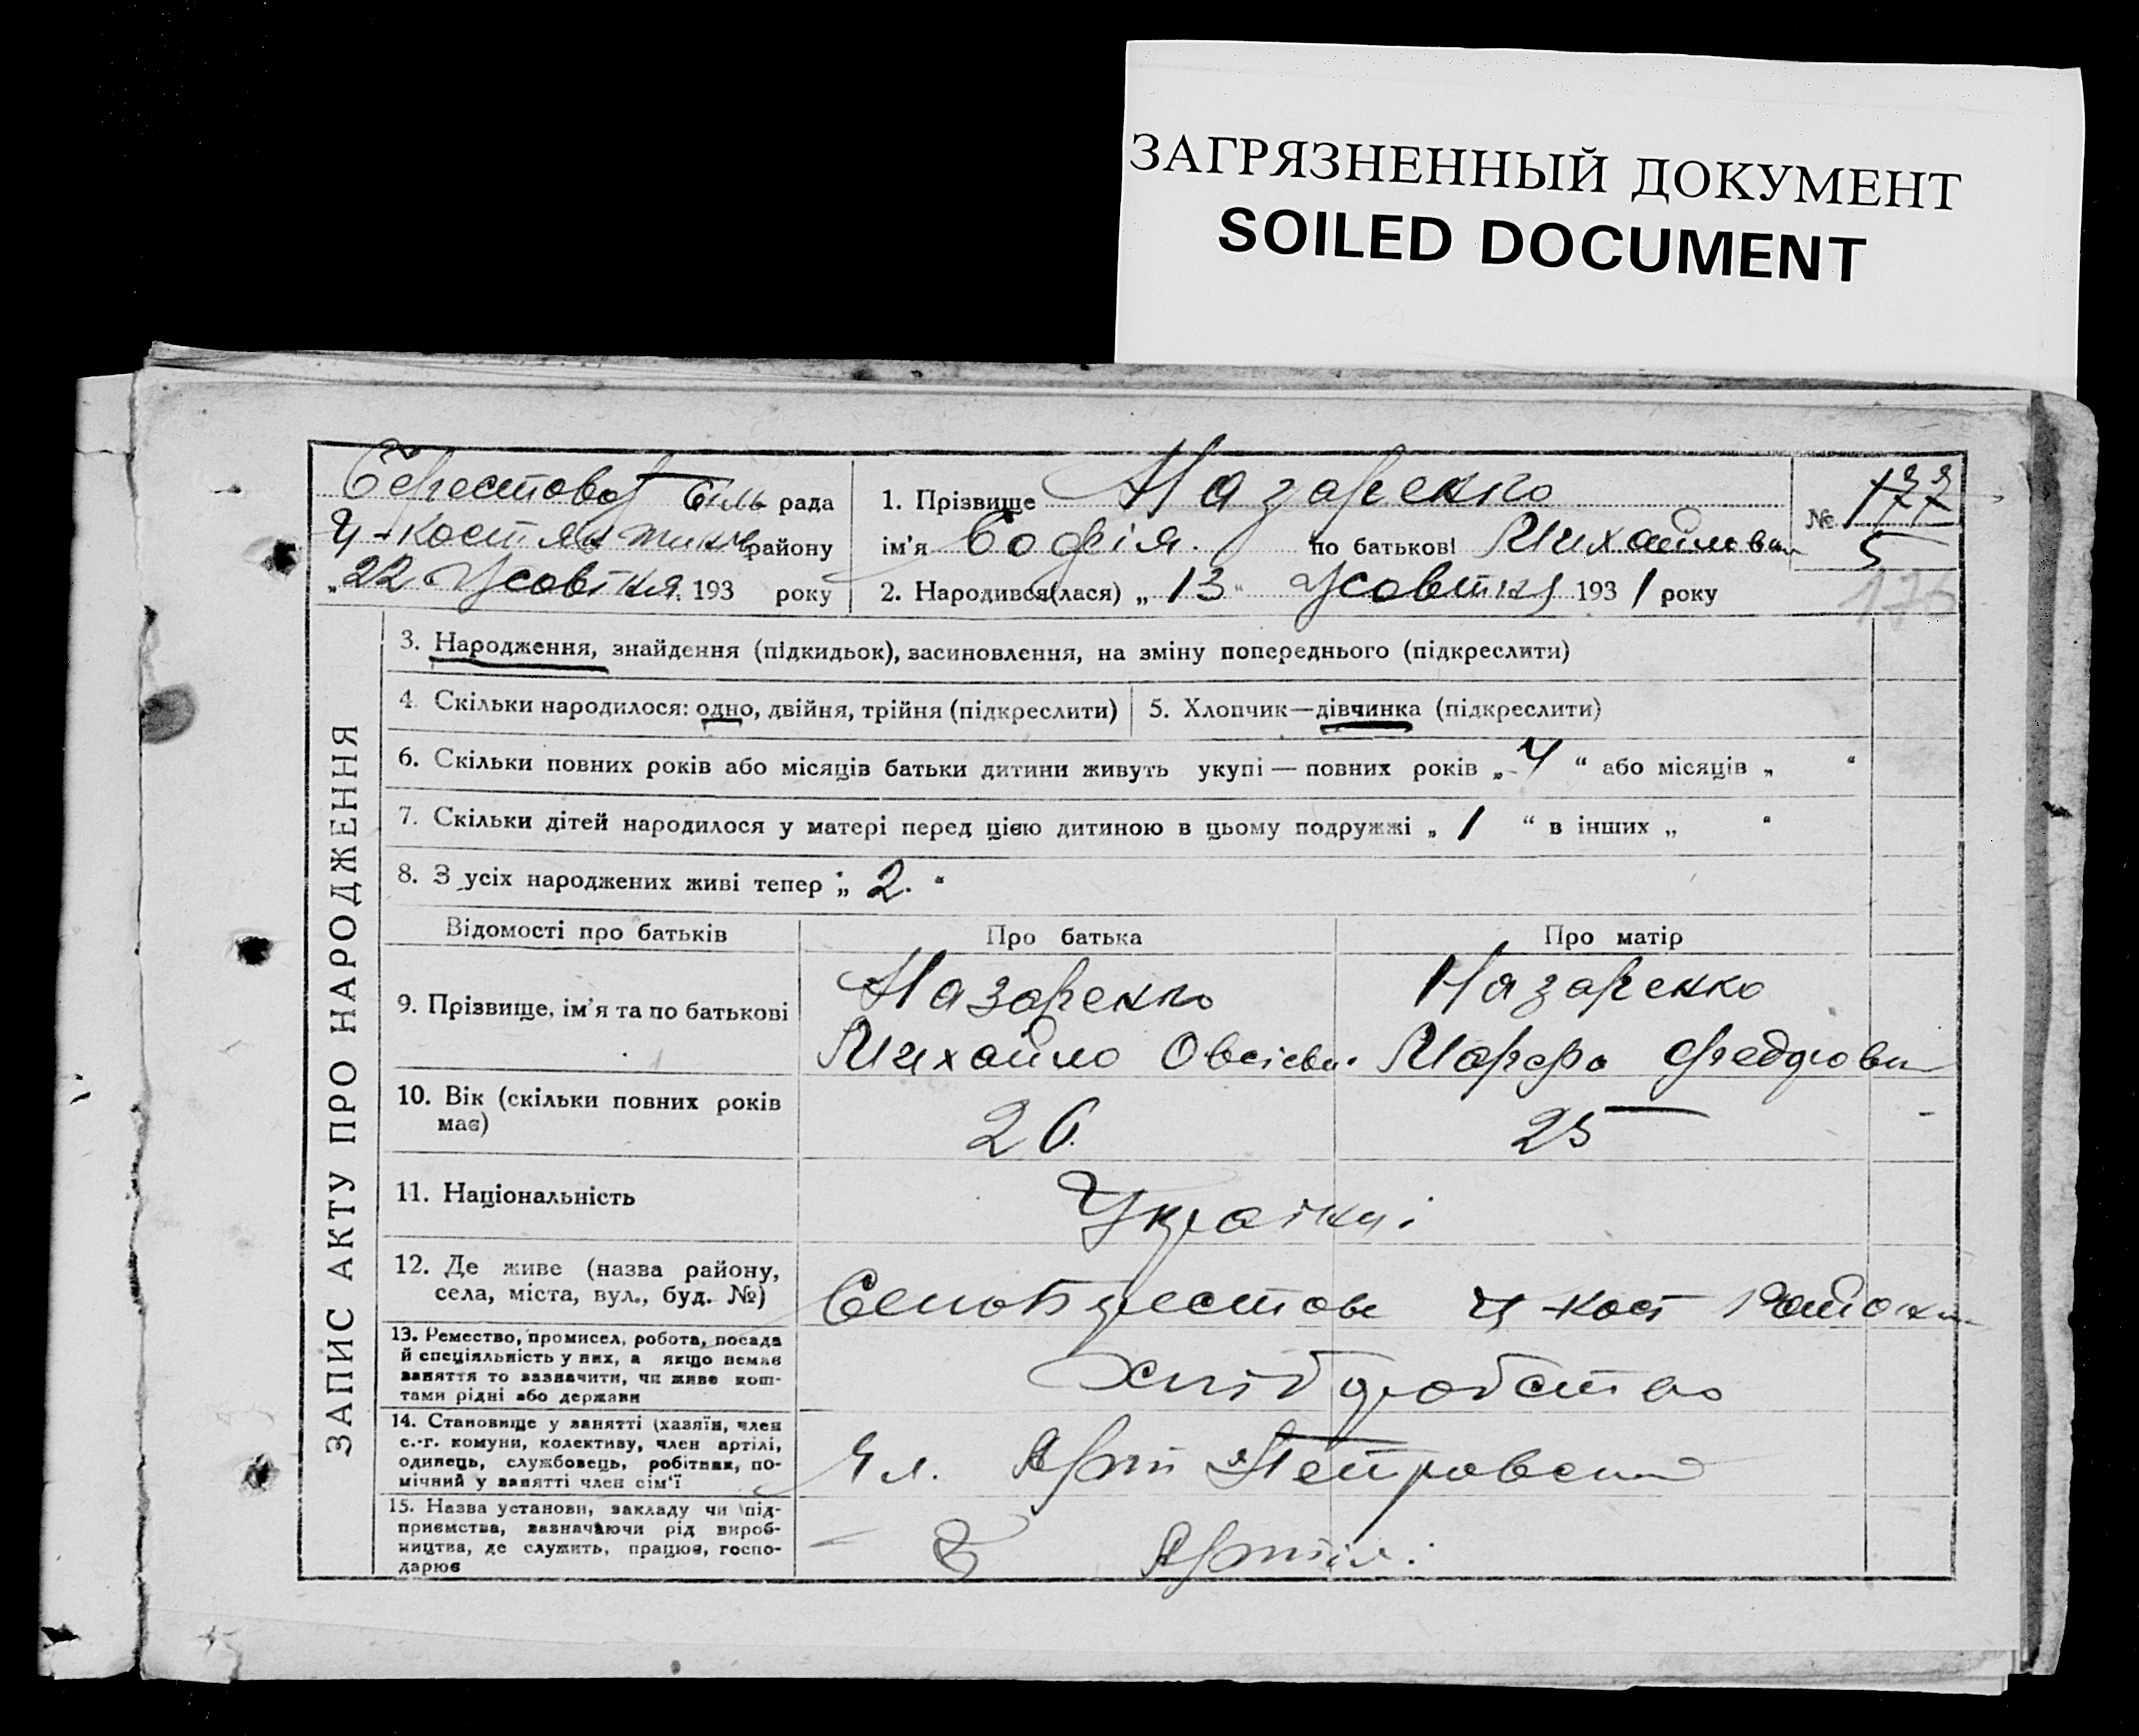 ЗАГРЯЗНЕННЫЙ ДОКУМЕНТ
SOILED DOCUMENT
Сіль рада
району
„22 Жовтня 193 року
1. Прізвище Назаренко
ім'я Софія. по батькові Михайлівн
2. Народився(лася) „13" Жовтня 1931 року
№ 177
5
176
ЗАПИС АКТУ ПРО НАРОДЖЕННЯ
3. Народження, знайдення (підкидьок), засиновлення, на зміну попереднього (підкреслити)
4. Скільки народилося: одно, двійня, трійня (підкреслити)
5. Хлопчик—дівчинка (підкреслити)
6. Скільки повних років або місяців батьки дитини живуть укупі — повних років „4" або місяців „ "
7. Скільки дітей народилося у матері перед цією дитиною в цьому подружжі „1" в інших „ "
8. З усіх народжених живі тепер „2."
Відомості про батьків
Про батька
Про матір
9. Прізвище, ім'я та по батькові
Назаренко
Михайло Овсієви
Назаренко
Марфа Федоровн
10. Вік (скільки повних років має)
26.
25
11. Національність
Українці
12. Де живе (назва району,
села, міста, вул., буд. №)
Ч-Кост Району
13. Ремество, промисел, робота, посада
й спеціяльність у них, а якщо немає
заняття то зазначити, чи живе кош-
тами рідні або держави
Хліборобство
14. Становище у занятті (хазяїн, член
с.-г. комуни, колективу, член артілі,
одинець, службовець, робітник, по-
мічний у занятті член сім'ї
Чл. Арт Петровськ
15. Назва установи, закладу чи під-
приємства, зазначаючи рід вироб-
ництва, де служить, працює, госпо-
дарює
В Артілі